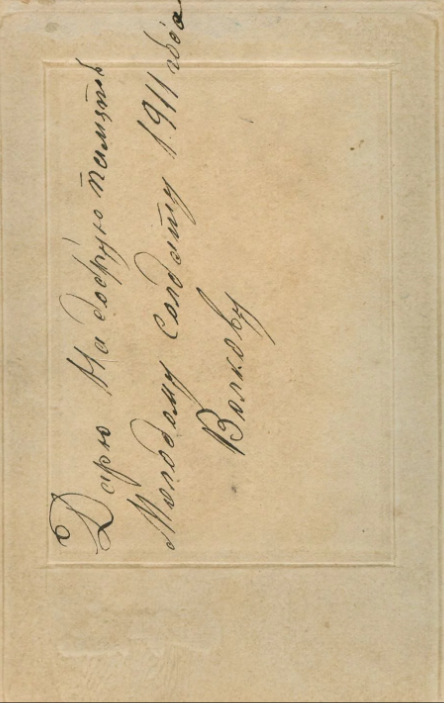 Дарю На добрую память
Молодому Солдату 1911 года
Волкову